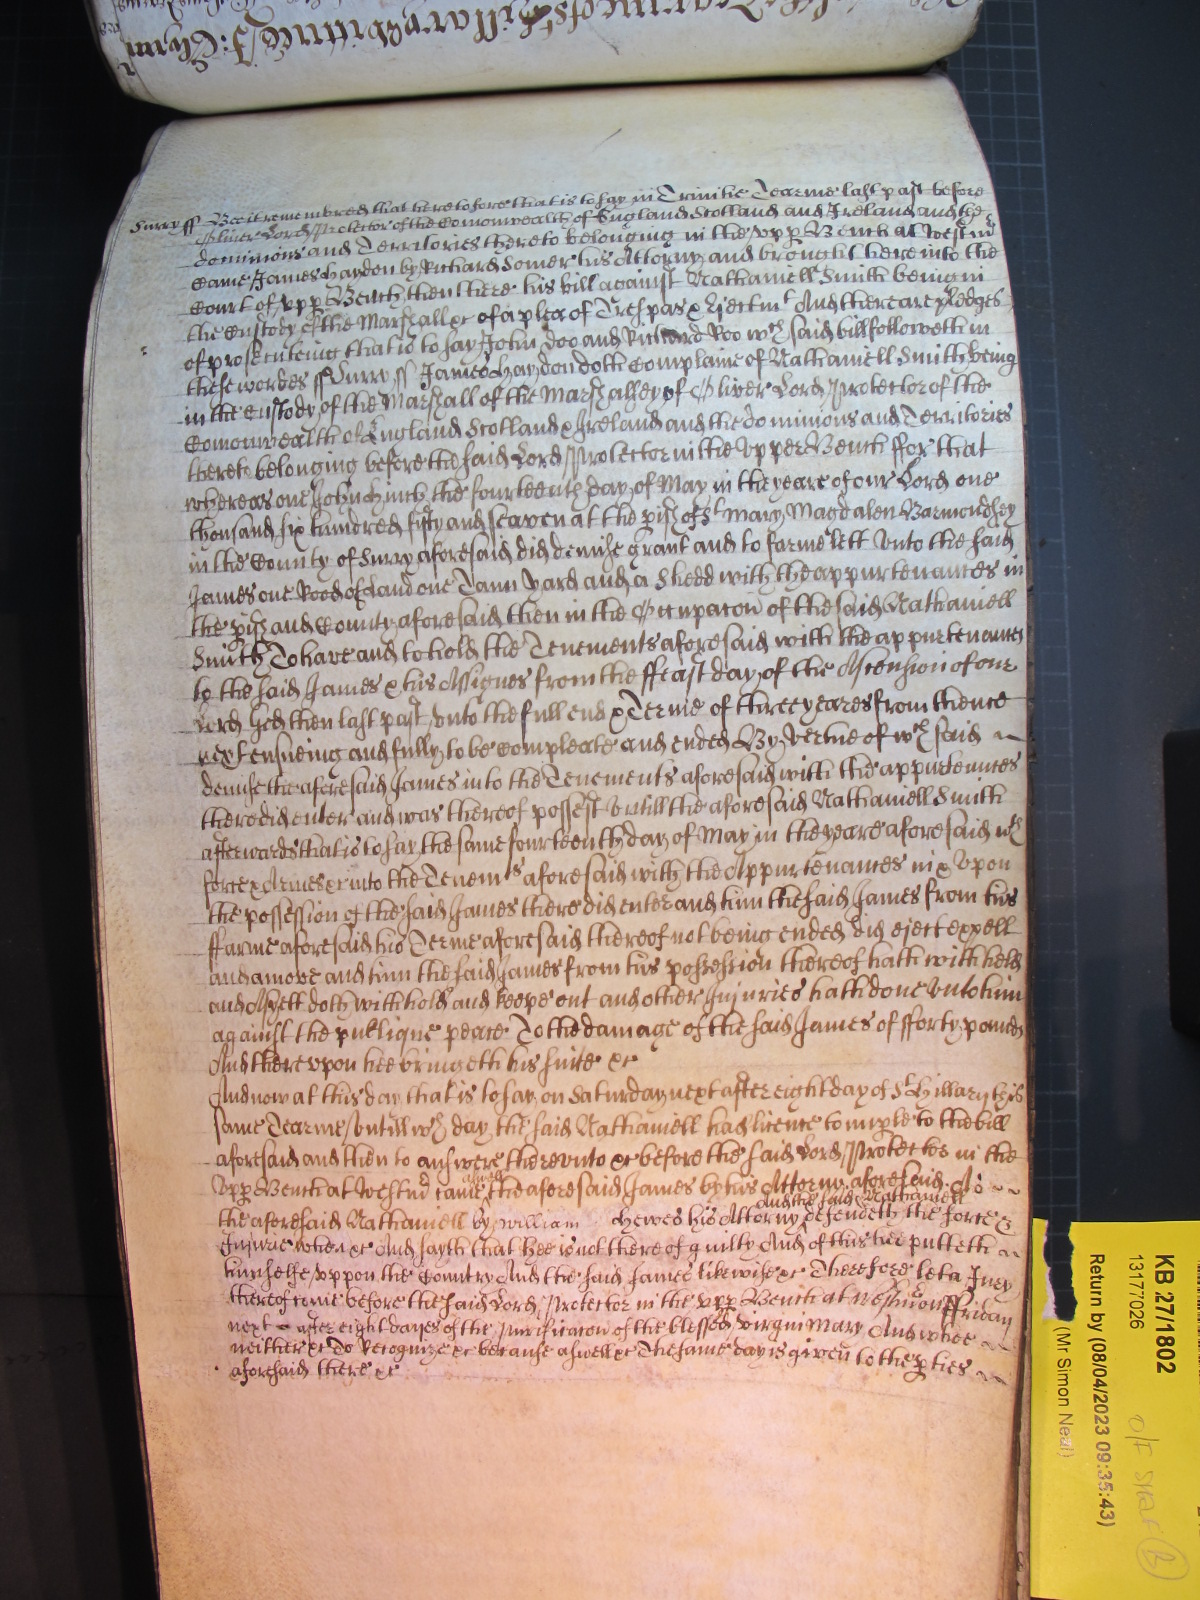 Surry ss Bee it remembred that heretofore that is to say in Trinitie Tearme last past before
Oliver Lord Protector of the Comonwealth of England Scotland and Ireland and the
dominions and Territories thereto belonging in the upp Bench at Westmr
Came James Haydon by Richard Somer his Attorny and brought here into the
Court of upp Bench then there his bill against Nathaniell Smith being in
the Custody of the Marshall &c of a plea of Trespas & Ejectmt And there are pledges
of prosecuteing that is to say John Doo and Richard Roo wch said bill followeth in
these wordes ss Surry ss James Haydon doth Complaine of Nathaniell Smith being
in the Custody of the Marshall of the Marshalsey of Oliver Lord Protector of the
Comonwealth of England Scotland & Ireland and the dominions and Territories
thereto belonging before the said Lord Protector in the Upper Bench ffor that
whereas one John the fourteenth day of May in the yeare of our Lord one
thousand six hundred fifty and seaven at the pish of St Mary Magdalen Barmondsey
in the County of Surry aforesaid did demise grant and to farme lett unto the said
James one Rood of land one Tann yard and a Shedd with the appurtenances in
the pish and County aforesaid then in the Occupacon of the said Nathaniell
Smith To have and to hold the Tenements aforesaid with the appurtenances
to the said James & his Assignes from the ffeast day of the Ascension of our
Lord God then last past unto the full end & Terme of three yeares from thence
next ensueing and fully to be Compleate and ended By vertue of wch said
demise the aforesaid James into the Tenements aforesaid with the appurtennces
there did enter and was thereof possest untill the aforesaid Nathaniell Smith
afterwards that is to say the same fourteenth day of May in the yeare aforesaid wth
force & Armes &c into the Tenemts aforesaid with the Appurtenances in & upon
the possession of the said James there did enter and him the said James from his
ffarme aforesaid his Terme aforesaid thereof not being ended did eject expell
and amove and him the said James from his possession thereof hath withheld
and as yett doth withhold and keepe out and other Injuries hath done unto him
against the publique peace To the damage of the said James of fforty pounds
And thereupon hee bringeth his suite &c
And now at this day that is to say on Saturday next after eight day of St Hillary this
same Tearme untill wch day the said Nathaniell had licence to imple to the bill
aforesaid and then to answere thereunto &c before the said Lord Protector in the
upp Bench at Westmr came aswell the aforesaid James by his Attorny aforesaid As
the aforesaid Nathaniell by William Hewes his Attorny And the said Nathaniell defendeth the force &
Injurie when &c And sayth that hee is not thereof guilty And of this hee putteth
himselfe uppon the Country And the said James likewise &c Therefore let a Jury
thereof come before the said Lord Protector in the upp Bench at Westmr on ffriday
next after eight dayes of the Purificacon of the blessed virgin Mary And whoe
neither &c To Recognize &c because aswell &c The same day is given to the pties
aforesaid there &c
KB 27/1802
13177026
Return by (08/04/2023 09:35:43)
(Mr Simon Neal)